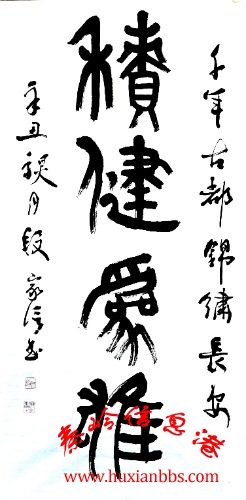 千年古都錦繡長安
積健爲雄
辛丑秋月段家信书
秦岭信息港
www.huxianbbs.com